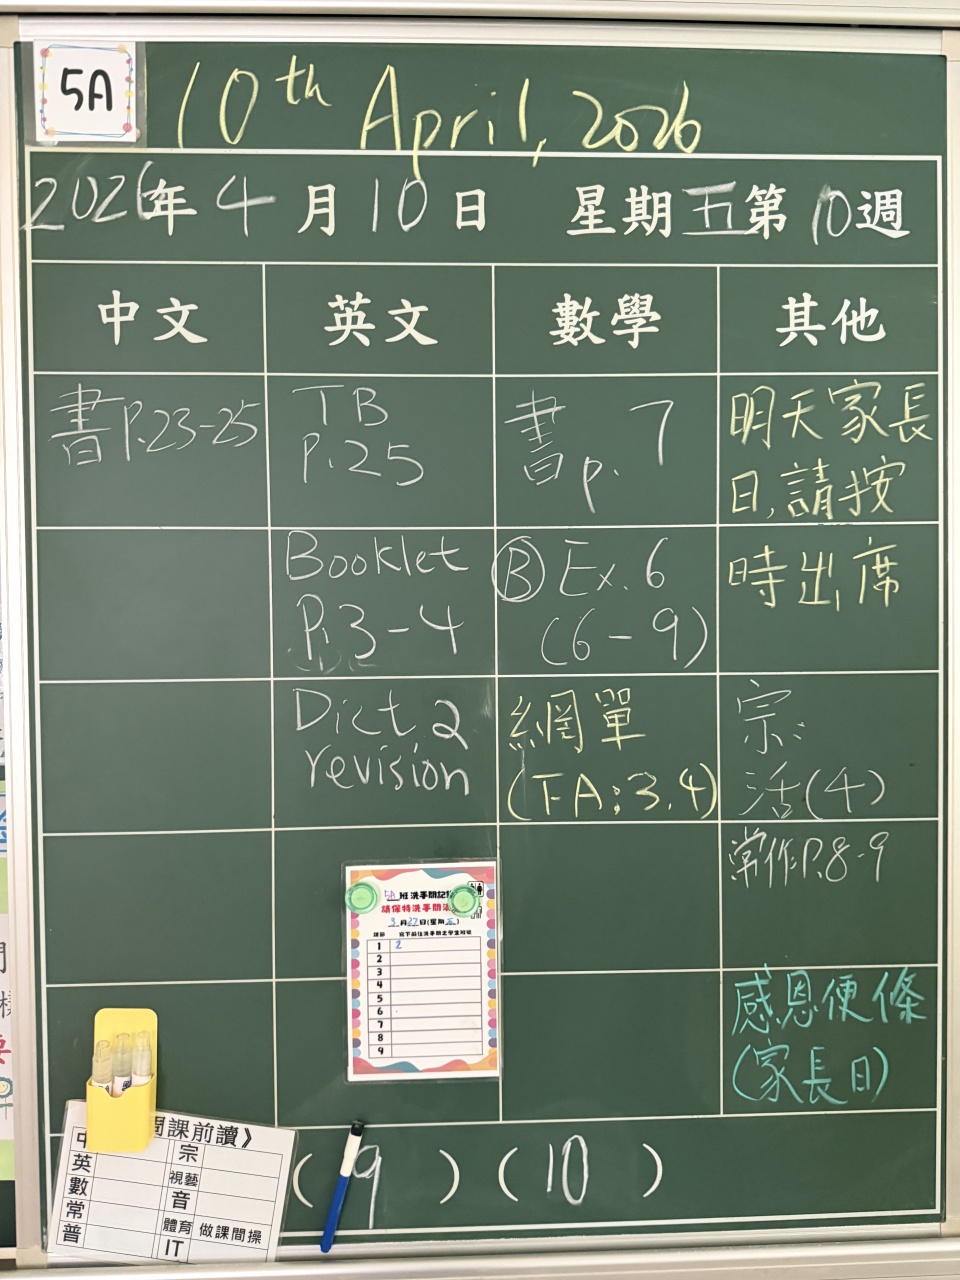 5A
10th April, 2026
2026年 4 月 10 日 星期五第 10 週
中文
英文
數學
其他
書 P.23-25
TB
P.25
書 p. 7
明天家長
日,請按
Booklet
P.3-4
Ⓑ Ex. 6
(6-9)
時出席
Dict 2
revision
網單
(TA:3.4)
宗:
活(4)
常作P.8-9
5A 班洗手間記
請保持洗手間
3月27日(星期五)
課節
寫下前往洗手間之學生班號
1 2
2
3
4
5
6
7
8
9
感恩便條
(家長日)
課前讀》
中
英
數
常
普
宗
視藝
音
體育 做課間操
IT
( 9 ) ( 10 )